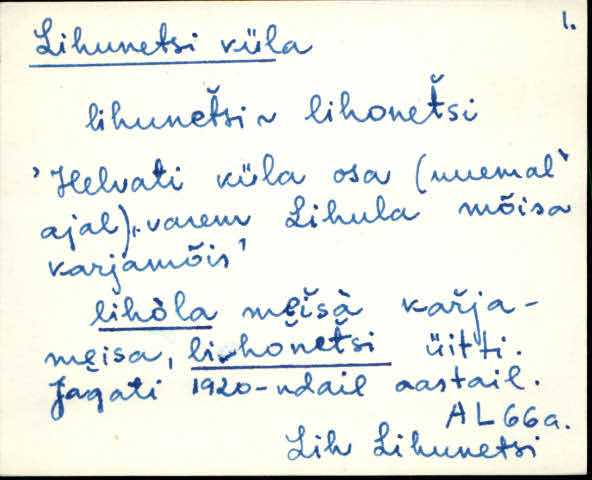 1.
Lihunetsi küla
lihunet̆si ~ lihonet̆si
'Helvati küla osa (uuemal
ajal), varem Lihula mõisa
karjamõis'
lihòla mẹišà kařja-
mẹisa, lihonet̆si üitti.
Jagati 1920-ndail aastail.
AL 66a.
Lih Lihunetsi